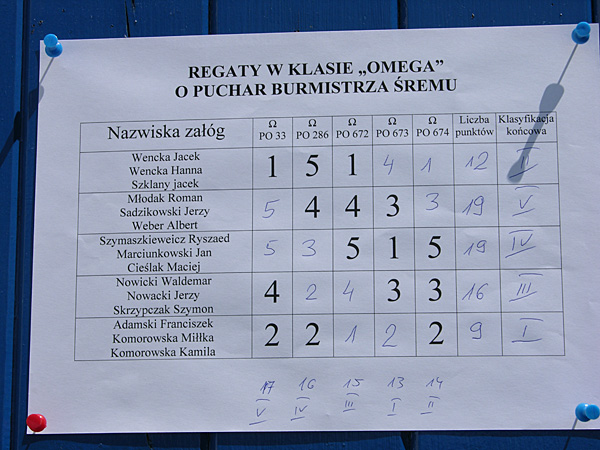 REGATY W KLASIE „OMEGA”
O PUCHAR BURMISTRZA ŚREMU
Nazwiska załóg Ω PO 33 Ω PO 286 Ω PO 672 Ω PO 673 Ω PO 674 Liczba punktów Klasyfikacja końcowa
Wencka Jacek
Wencka Hanna 1 5 1 4 1 12 II
Szklany jacek
Młodak Roman
Sadzikowski Jerzy 5 4 4 3 3 19 V
Weber Albert
Szymaszkieweicz Ryszaed
Marciunkowski Jan 5 3 5 1 5 19 IV
Cieślak Maciej
Nowicki Waldemar
Nowacki Jerzy 4 2 4 3 3 16 III
Skrzypczak Szymon
Adamski Franciszek
Komorowska Miłłka 2 2 1 2 2 9 I
Komorowska Kamila
17 16 15 13 14
V IV III I II